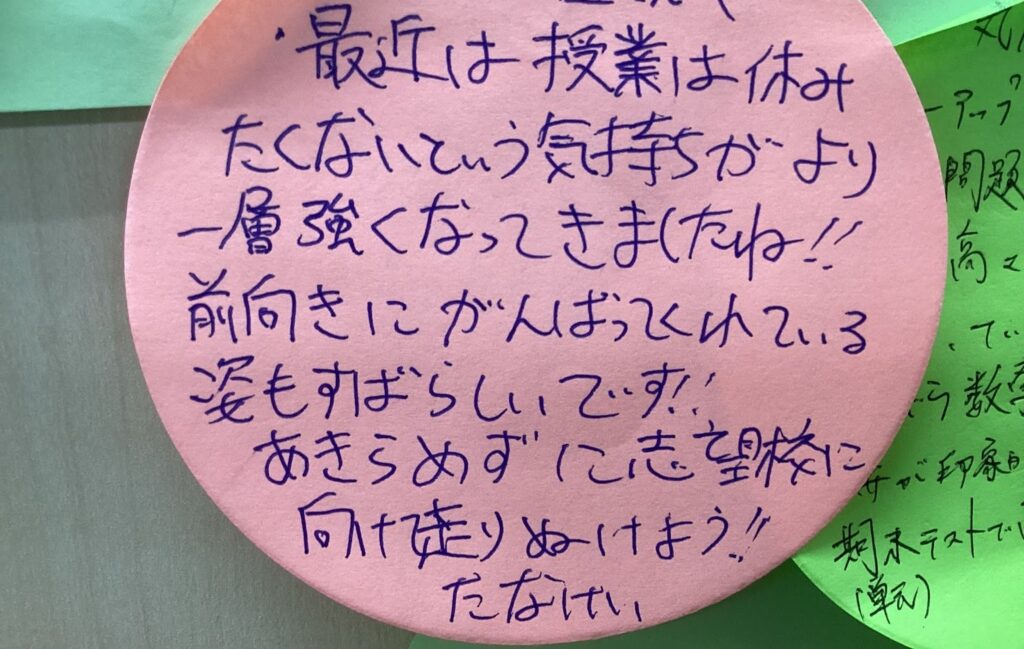 ・最近は授業は休み
たくないという気持ちがより
一層強くなってきましたね!!
前向きにがんばってくれている
姿もすばらしいです!!
あきらめずに志望校に
向けて走りぬけよう!!
たなけい
アップ
問題
高々
てい
数学
が印象的
期末テストで
(単元)